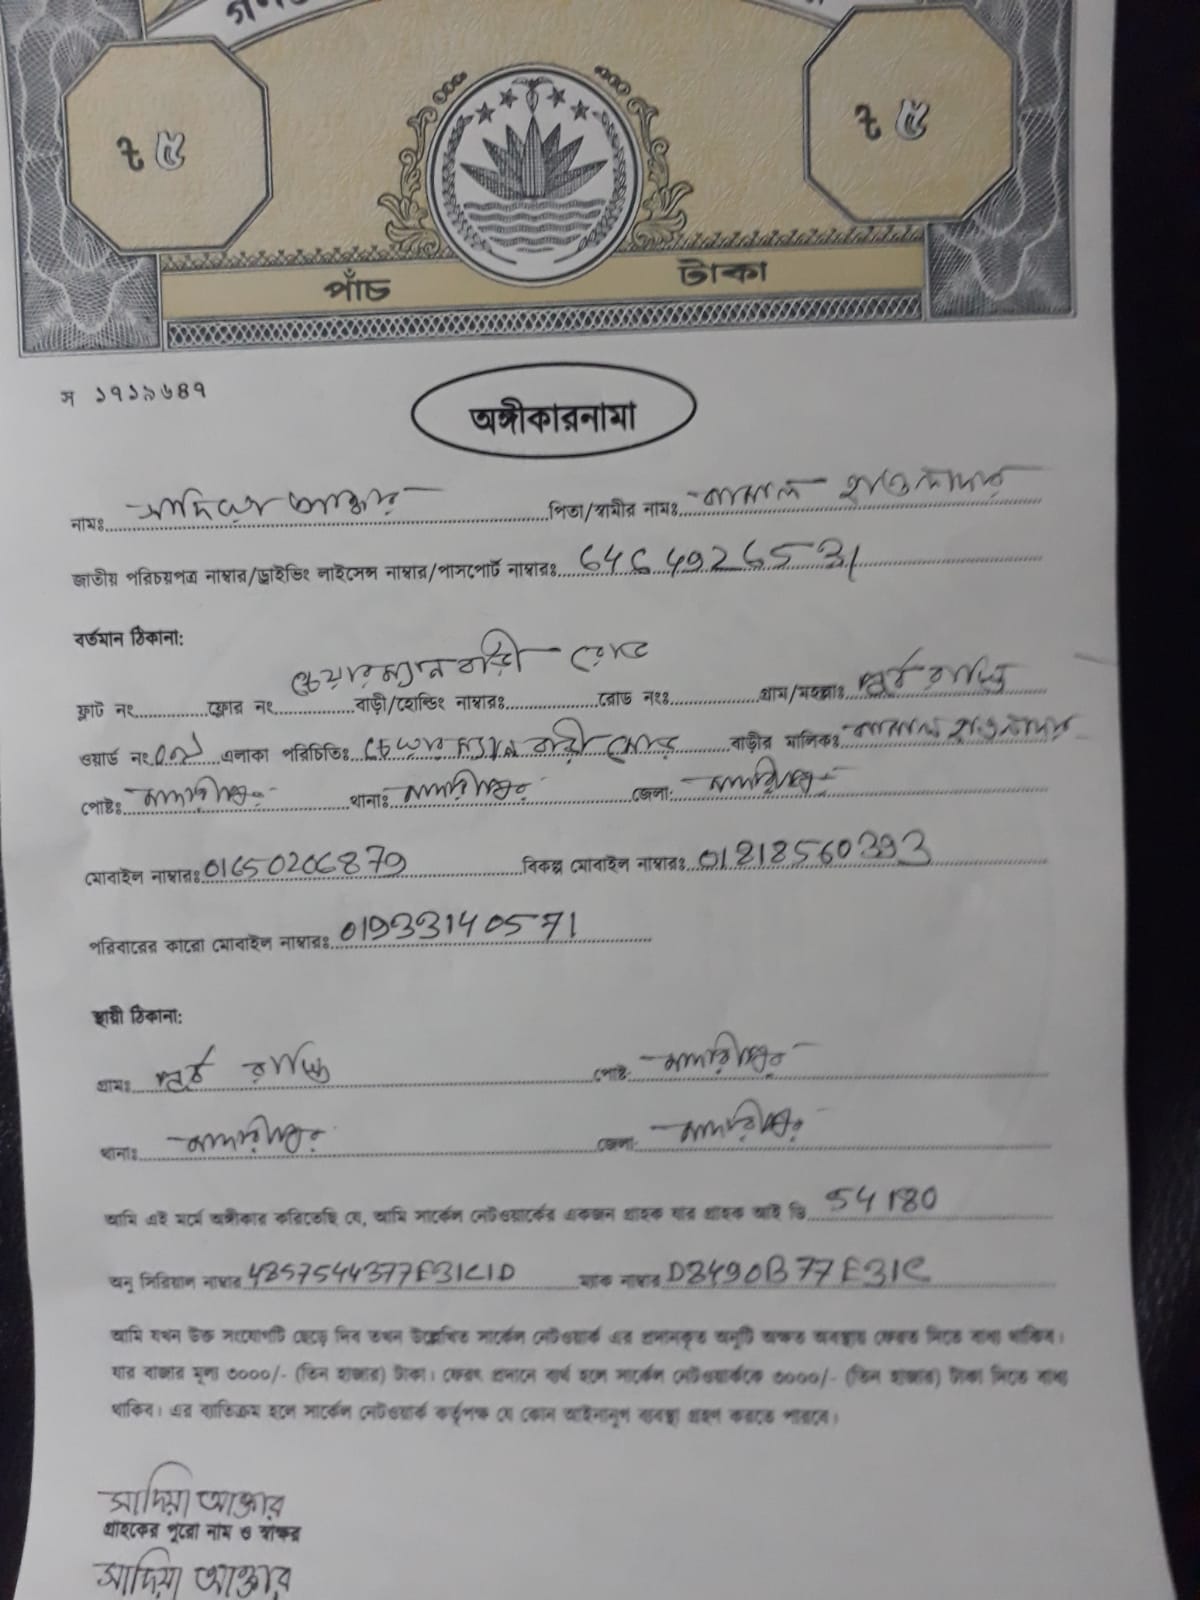 ৳ ৫
৳ ৫
পাঁচ টাকা
স ১৭১৯৬৪৭
অঙ্গীকারনামা
নামঃ সাদিয়া আক্তার পিতা/স্বামীর নামঃ কামাল হাওলাদার
জাতীয় পরিচয়পত্র নাম্বার/ড্রাইভিং লাইসেন্স নাম্বার/পাসপোর্ট নাম্বারঃ 6464926531
বর্তমান ঠিকানা:
চেয়ারম্যান বাড়ী রোড
ফ্লাট নং ফ্লোর নং বাড়ী/হোল্ডিং নাম্বারঃ রোড নংঃ গ্রাম/মহল্লাঃ পূর্ব রাস্তি
ওয়ার্ড নং এলাকা পরিচিতিঃ চেয়ারম্যান বাড়ী রোড বাড়ীর মালিকঃ কামাল হাওলাদার
পোষ্টঃ মাদারীপুর থানাঃ মাদারীপুর জেলা: মাদারীপুর
মোবাইল নাম্বারঃ 01650206879 বিকল্প মোবাইল নাম্বারঃ 01818560393
পরিবারের কারো মোবাইল নাম্বারঃ 01933140571
স্থায়ী ঠিকানা:
গ্রামঃ পূর্ব রাস্তি পোষ্ট: মাদারীপুর
থানাঃ মাদারীপুর জেলা: মাদারীপুর
আমি এই মর্মে অঙ্গীকার করিতেছি যে, আমি সার্কেল নেটওয়ার্কের একজন গ্রাহক যার গ্রাহক আই ডি 54180
অনু সিরিয়াল নাম্বার 4857544377E31C1D ম্যাক নাম্বার D8490B77E31C
আমি যখন উক্ত সংযোগটি ছেড়ে দিব তখন উল্লেখিত সার্কেল নেটওয়ার্ক এর প্রদানকৃত অনুটি অক্ষত অবস্থায় ফেরত দিতে বাধ্য থাকিব।
যার বাজার মূল্য ৩০০০/- (তিন হাজার) টাকা। ফেরৎ প্রদানে ব্যর্থ হলে সার্কেল নেটওয়ার্ককে ৩০০০/- (তিন হাজার) টাকা দিতে বাধ্য
থাকিব। এর ব্যতিক্রম হলে সার্কেল নেটওয়ার্ক কর্তৃপক্ষ যে কোন আইনানুগ ব্যবস্থা গ্রহণ করতে পারবে।
সাদিয়া আক্তার
গ্রাহকের পুরো নাম ও স্বাক্ষর
সাদিয়া আক্তার